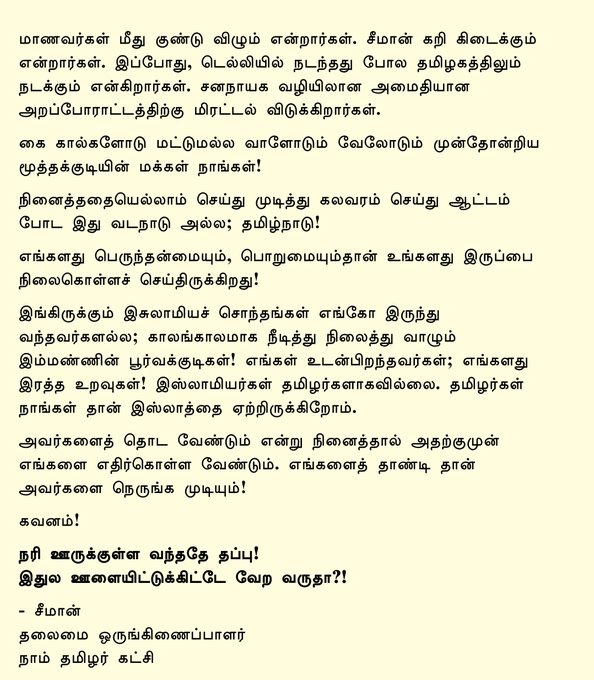 மாணவர்கள் மீது குண்டு விழும் என்றார்கள். சீமான் கறி கிடைக்கும்
என்றார்கள். இப்போது, டெல்லியில் நடந்தது போல தமிழகத்திலும்
நடக்கும் என்கிறார்கள். சனநாயக வழியிலான அமைதியான
அறப்போராட்டத்திற்கு மிரட்டல் விடுக்கிறார்கள்.
கை கால்களோடு மட்டுமல்ல வாளோடும் வேலோடும் முன்தோன்றிய
மூத்தக்குடியின் மக்கள் நாங்கள்!
நினைத்ததையெல்லாம் செய்து முடித்து கலவரம் செய்து ஆட்டம்
போட இது வடநாடு அல்ல; தமிழ்நாடு!
எங்களது பெருந்தன்மையும், பொறுமையும்தான் உங்களது இருப்பை
நிலைகொள்ளச் செய்திருக்கிறது!
இங்கிருக்கும் இசுலாமியச் சொந்தங்கள் எங்கோ இருந்து
வந்தவர்களல்ல; காலங்காலமாக நீடித்து நிலைத்து வாழும்
இம்மண்ணின் பூர்வக்குடிகள்! எங்கள் உடன்பிறந்தவர்கள்; எங்களது
இரத்த உறவுகள்! இஸ்லாமியர்கள் தமிழர்களாகவில்லை. தமிழர்கள்
நாங்கள் தான் இஸ்லாத்தை ஏற்றிருக்கிறோம்.
அவர்களைத் தொட வேண்டும் என்று நினைத்தால் அதற்குமுன்
எங்களை எதிர்கொள்ள வேண்டும். எங்களைத் தாண்டி தான்
அவர்களை நெருங்க முடியும்!
கவனம்!
நரி ஊருக்குள்ள வந்ததே தப்பு!
இதுல ஊளையிட்டுக்கிட்டே வேற வருதா?!
- சீமான்
தலைமை ஒருங்கிணைப்பாளர்
நாம் தமிழர் கட்சி